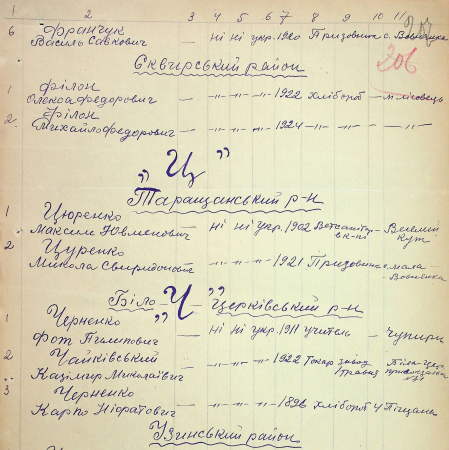 1 2 3 4 5 6 7 8 9 10 11
6 Франчук
Василь Савкович — ні ні укр. 1920 Призовник с. Вовнянка
206
Сквирський район
1 Філон
Олекса Федорович — -"- -"- -"- 1922 хлібороб —
2 Філон
Михайло Федорович — -"- -"- -"- 1924 -"- — -"-
„Ц”
Таращанський р-н
1 Цюренко
Максим Ювменович — ні ні укр. 1902 — Веселий
Кут
2 Цуренко
Микола Свиридонович — -"- -"- -"- 1921 Призовник мала
Вовнянка
„Ч”
Біло Церківський р-н
1 Черненко
Фот Пилипович — ні ні укр. 1911 учитель — Чупири
2 Чайківський
Казімир Миколаївич — -"- -"- -"- 1922 Токар завод Біла Церк
3 Черненко
Карпо Ніфатович — -"- -"- -"- 1896 хлібороб Піщана
Узинський район